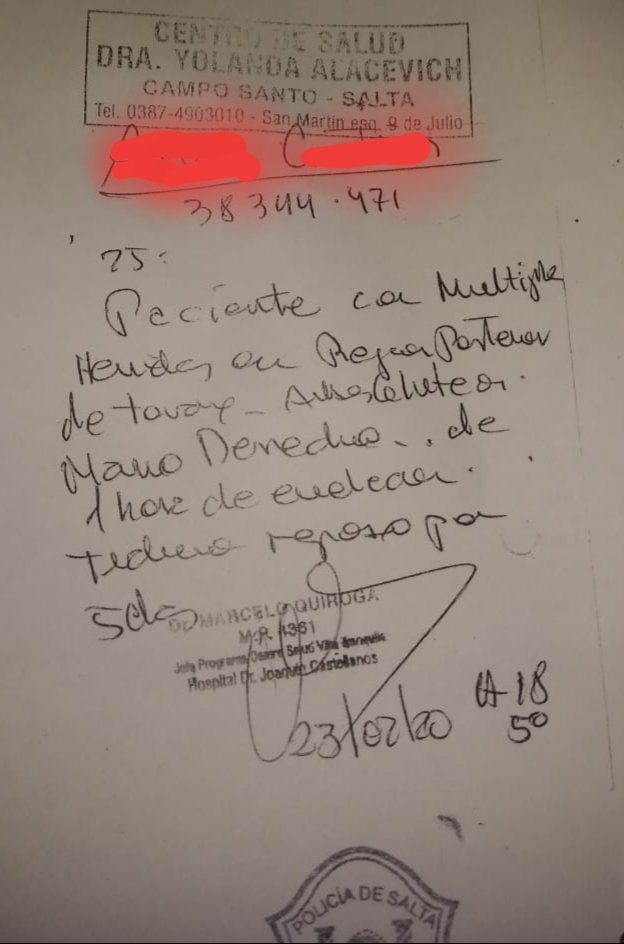 CENTRO DE SALUD
DRA. YOLANDA ALACEVICH
CAMPO SANTO - SALTA
Tel. 0387-4903010 - San Martin esq. 9 de Julio
38344.471
Paciente con Multiples
Heridas en Region Posterior
de torax -
Mano Derecha. de
1 hora de evolucion.
reposo por
5ds
DR. MARCELO QUIROGA
M.P. 4361
Jefe Programa Centro Salud Villa
Hospital Dr. Joaquin Castellanos
23/02/20
H-18
50
POLICÍA DE SALTA